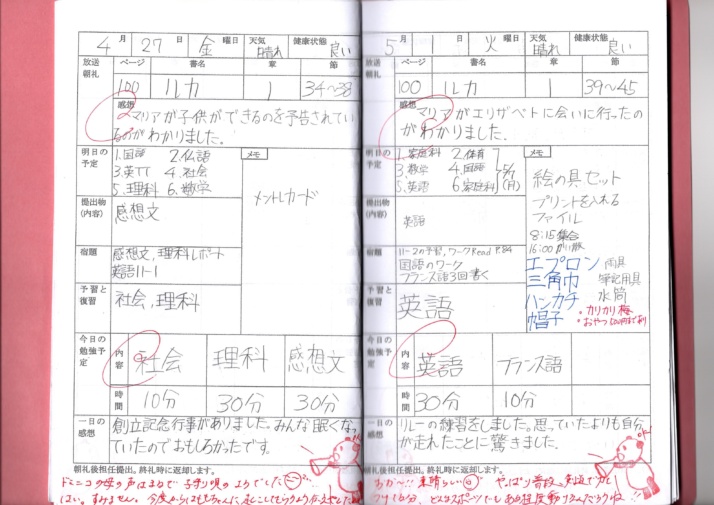 4月27日金曜日 天気 晴れ 健康状態 良い
放送朝礼 ページ 書名 章 節
100 ルカ 1 34〜38
感想
マリアが子供ができるのを予告されてい
るのがわかりました。
明日の予定
1.国語 2.仏語
3.英TT 4.社会
5.理科 6.数学
メモ
メントレカード
提出物(内容)
感想文
宿題
感想文,理科レポート
英語11-1
予習と復習
社会,理科
今日の勉強予定
内容 社会 理科 感想文
時間 10分 30分 30分
一日の感想
創立記念行事がありました。みんな眠くなっ
ていたのでおもしろかったです。
朝礼後担任提出。終礼時に返却します。
5月1日火曜日 天気 晴れ 健康状態 良い
放送朝礼 ページ 書名 章 節
100 ルカ 1 39〜45
感想
マリアがエリザベトに会いに行ったの
がわかりました。
明日の予定
1.家庭科 2.体育
3.数学 4.国語
5.英語 6.家庭科
(月)
メモ
絵の具セット
プリントを入れる
ファイル
8:15集合
16:00
エプロン 雨具
三角巾 筆記用具
ハンカチ 水筒
帽子
・カリカリ梅
提出物(内容)
英語
宿題
11-2の予習,ワークRead P.84
国語のワーク
フランス語3回書く
予習と復習
英語
今日の勉強予定
内容 英語 フランス語
時間 30分 10分
一日の感想
リレーの練習をしました。思っていたよりも自分
が走れたことに驚きました。
朝礼後担任提出。終礼時に返却します。